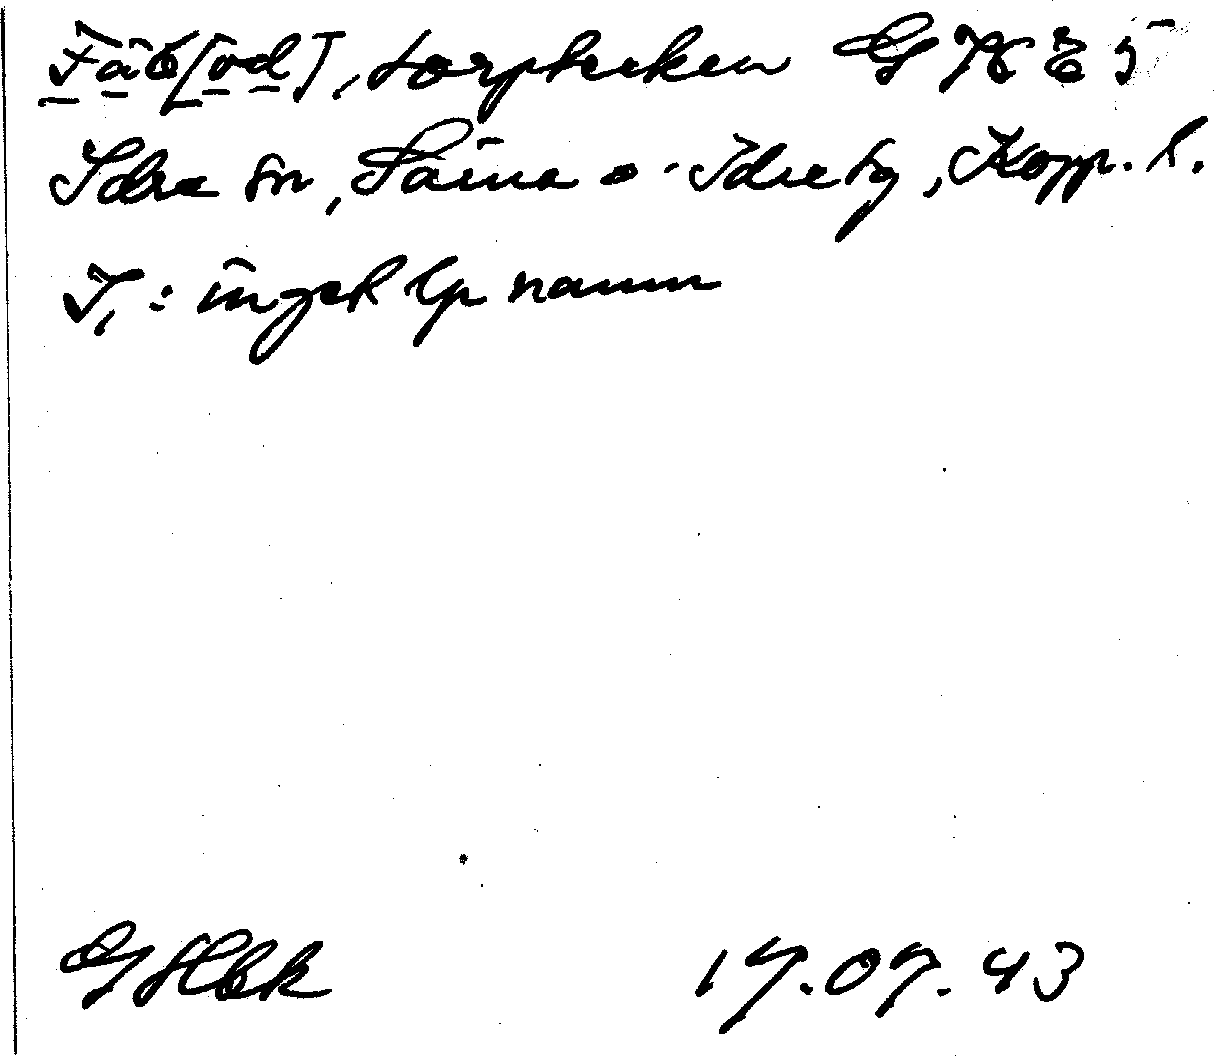 Fäb[od], torptecken G K E 5
Idre sn, Särna o. Idre tg, Kopp. l.
I, : inget lp namn
17.07.43